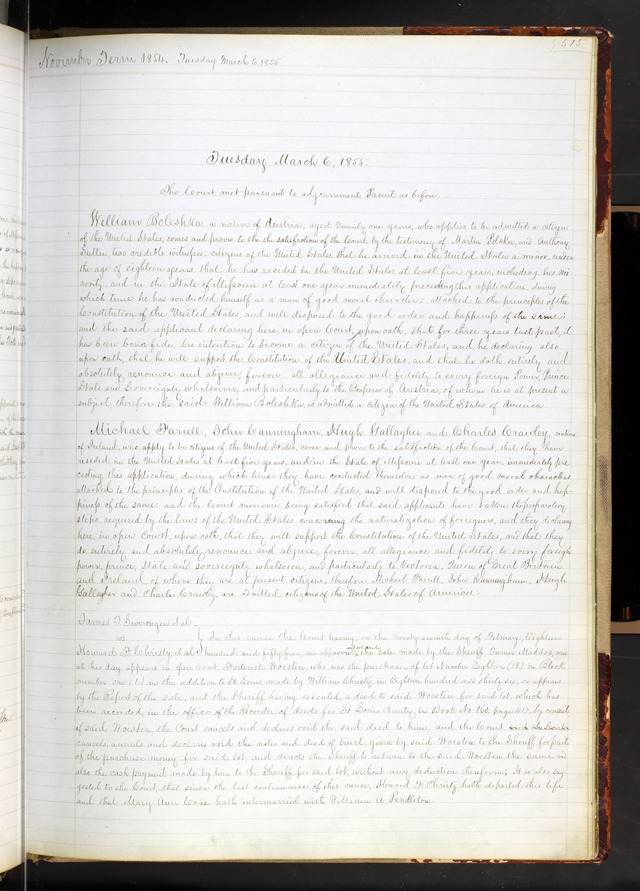 515
November Term 1854. Tuesday March 6, 1855
Tuesday March 6, 1855.
The Court met pursuant to adjournment. Present as before.
William Boleshka a native of Austria, aged twenty one years, who applies to be admitted a citizen
of the United States, comes and proves to the the satisfaction of the Court, by the testimony of Martin and Anthony
two credible witnesses, citizens of the United States, that he arrived in the United States a minor, under
the age of eighteen years, that he has resided in the United States at least five years, including his mi
nority, and in the State of Missouri at least one year immediately preceding this application, during
which time he has conducted himself as a man of good moral character; attached to the principles of the
Constitution of the United States, and well disposed to the good order and happiness of the same:
and the said applicant declaring here, in open Court, upon oath, that for three years last past, it
has been bona fide, his intention to become a citizen of the United States, and he declaring also
upon oath, that he will support the Constitution of the United States, and that he doth entirely and
absolutely renounce and abjure forever, all allegiance and fidelity to every foreign Power, Prince
State and Sovereignty whatsoever, and particularly to the Emperor of Austria, of whom he is at present a
subject therefore the said William Boleshka, is admitted a citizen of the United States of America.
Michael Farrell, John Cunningham, Hugh Gallagher and Charles Crawley, natives
of Ireland, who apply to be citizens of the United States, come and prove to the satisfaction of the Court, that they have
resided in the United States at least five years, and in the State of Missouri at least one year, immediately pre
ceding this application, during which time they have conducted themselves as men of good moral character
attached to the principles of the Constitution of the United States, and well disposed to the good order and hap
piness of the same: and the Court moreover being satisfied that said applicants have taken the preparatory
steps required by the laws of the United States concerning the naturalization of foreigners, and they declaring
here, in open Court, upon oath, that they will support the Constitution of the United States, and that they
do entirely and absolutely renounce and abjure, forever, all allegiance and fidelity to every foreign
power, prince, State and sovereignty whatsoever, and particularly to Victoria, Queen of Great Britain
and Ireland, of whom they are at present citizens, therefore Michael Farrell, John Cunningham, Hugh
Gallagher and Charles Crawley, are admitted citizens of the United States of America.
James T. et al
vs
In this cause the Court having, on the twenty seventh day of February, Eighteen
Howard F. Christy et al hundred and fifty five, disapproved the Sale made by the Sheriff, now
at this day appears in open Court Frederick Woesten, who was the purchaser of lot number Eighteen (18) in Block
number one (1) in the addition to St. Louis, made by William Christy, in Eighteen hundred and thirty six, as appears
by the Report of the sale, and the Sheriff having executed a deed to said Woesten for said lot, which has
been recorded in the office of the Recorder of deeds for St Louis County in Book No page 417, by consent
of said Woesten, the Court cancels and declares void the said deed to him, and the Court,
cancels, annuls and declares void the notes and deed of trust, given by said Woesten to the Sheriff for part
of the purchase money for said lot, and directs the Sheriff to return to the said Woesten the same as
also the cash payment made by him to the Sheriff for said lot, without any deduction therefrom; It is also sug
gested to the Court, that since the last continuance of this cause, Howard F. Christy hath departed this life
and that Mary Ann hath intermarried with William A. Pendleton.